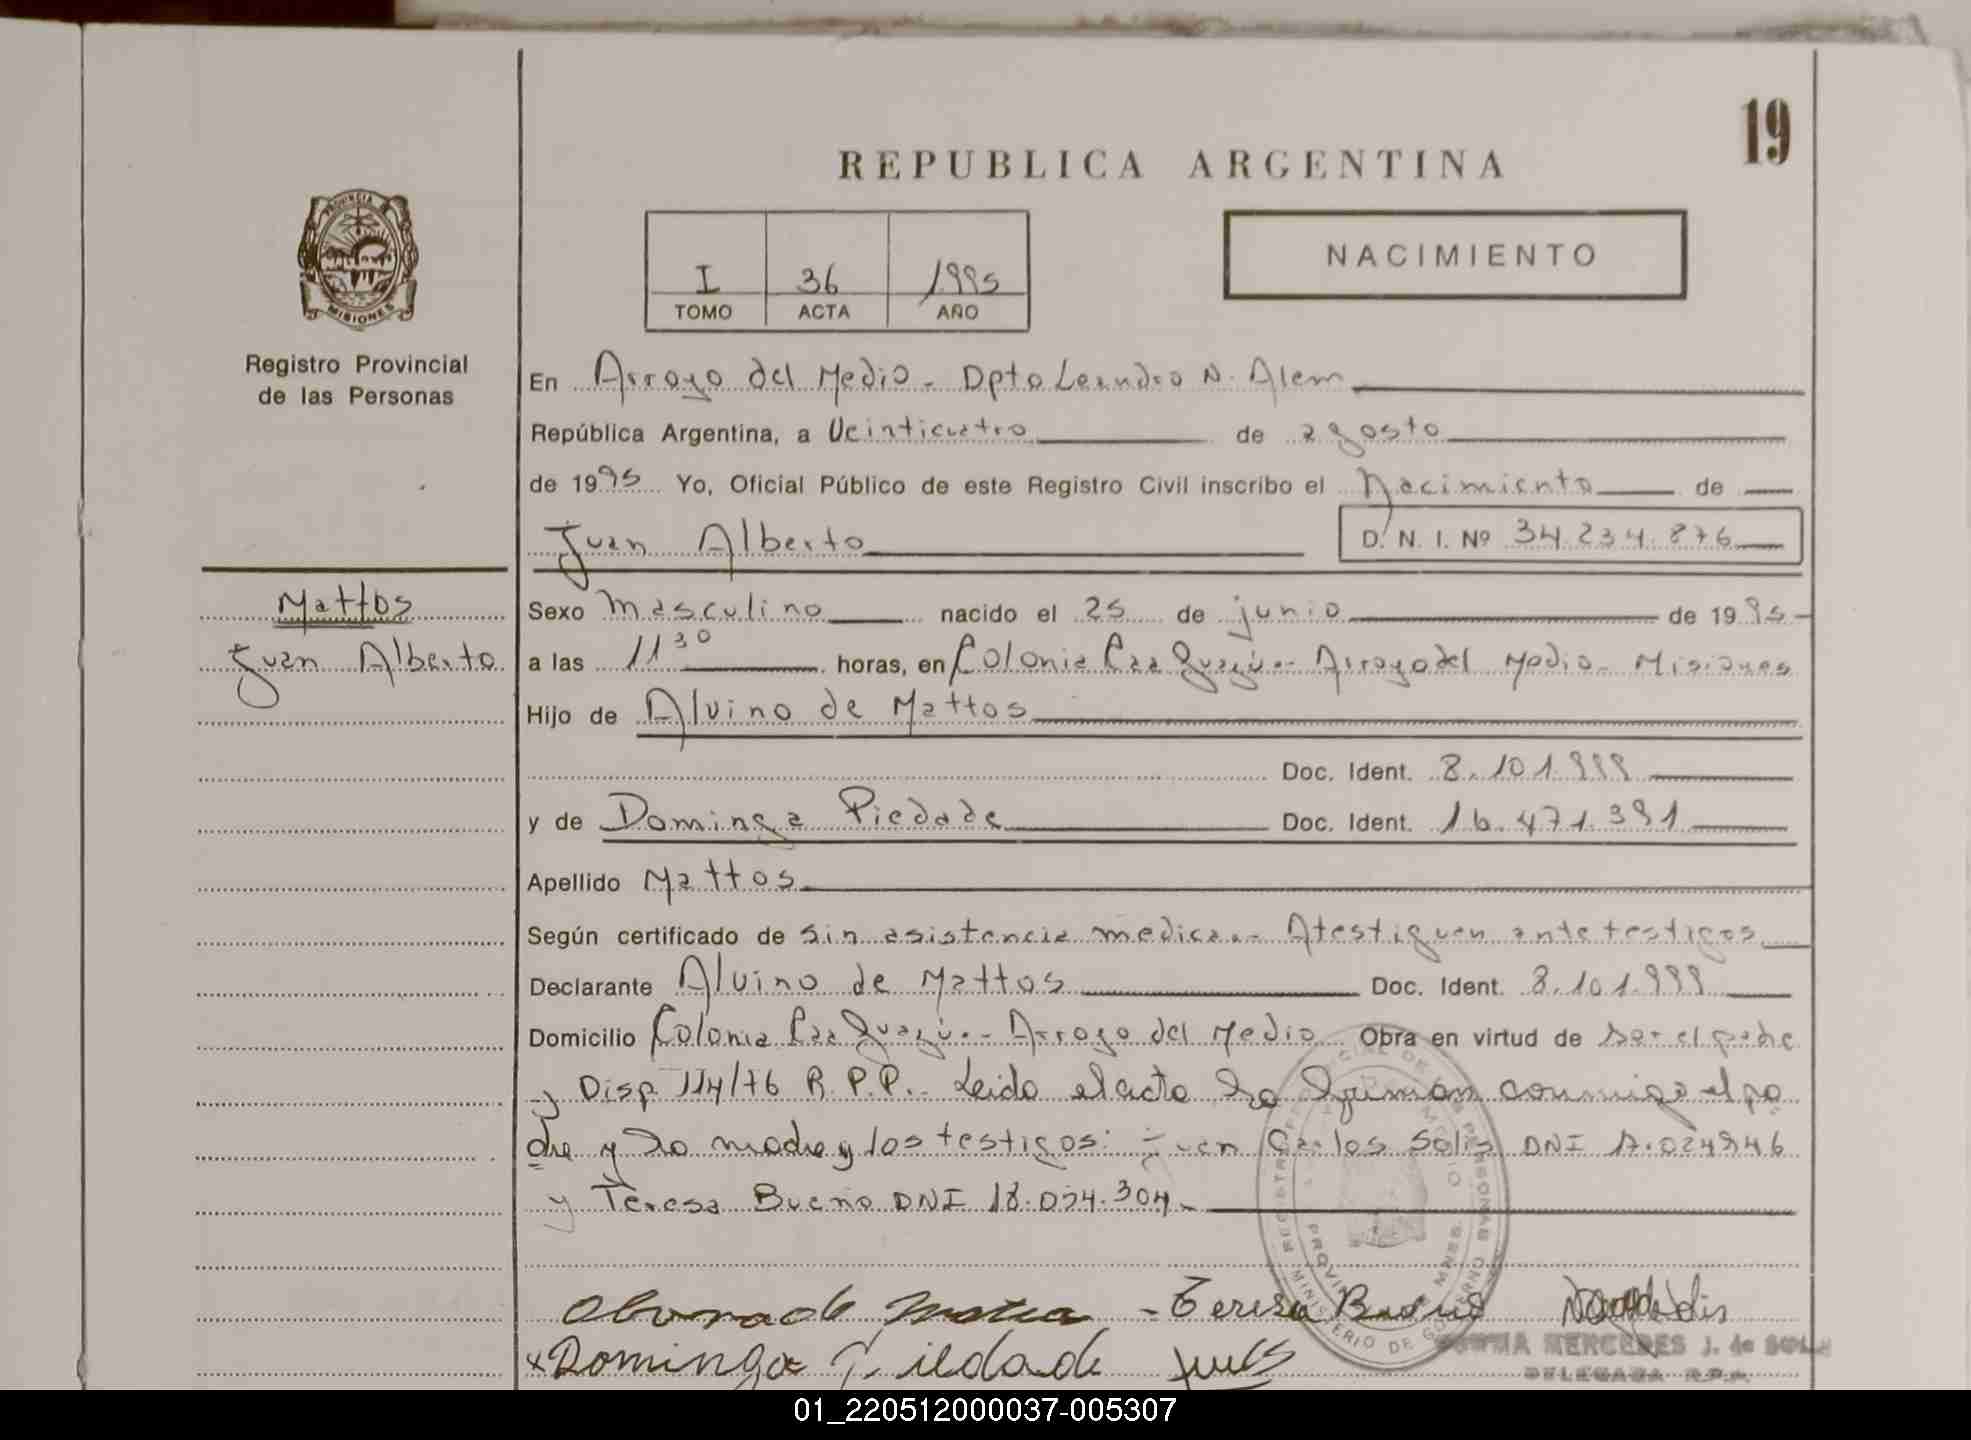 19
REPUBLICA ARGENTINA
I 36 1995
TOMO ACTA AÑO
NACIMIENTO
PROVINCIA DE
MISIONES
Registro Provincial
de las Personas
En Arroyo del Medio - Dpto Leandro N. Alem
República Argentina, a Veinticuatro de agosto
de 1995 Yo, Oficial Público de este Registro Civil inscribo el Nacimiento de
Juan Alberto D. N. I. Nº 34.234.876
Mattos
Juan Alberto
Sexo Masculino nacido el 25 de junio de 1995
a las 11 30 horas, en Colonia Caa Guazú.- Arroyo del Medio - Misiones
Hijo de Alvino de Mattos
Doc. Ident. 8.101.999
y de Dominga Piedade Doc. Ident. 16.471.391
Apellido Mattos
Según certificado de Sin asistencia medica.- Atestiguan ante testigos
Declarante Alvino de Mattos Doc. Ident. 8.101.999
Domicilio Colonia Caa Guazú.- Arroyo del Medio Obra en virtud de Ser el padre
y Disp 114/76 R.P.P.. Leido el acta la firman conmigo el pa
dre y la madre y los testigos: Juan Carlos Solis DNI 17.024946
y Teresa Bueno DNI 18.054.304
Teresa Bueno
Dominga Piedade
MERCEDES J. de
DELEGADA R.P.P.
01_220512000037-005307